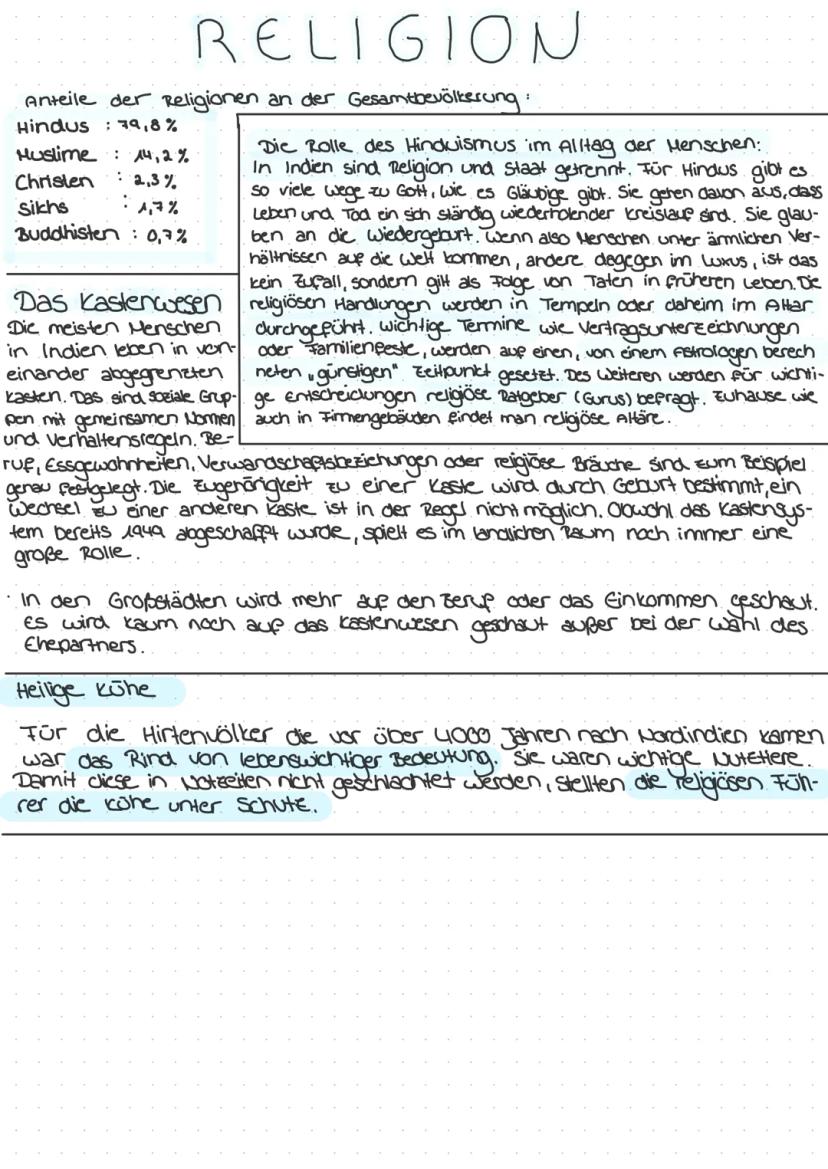 RELIGION
Anteile der Religionen an der Gesamtbevölkerung:
Hindus : 79,8%
Muslime : 14,2%
Christen : 2,3%
Sikhs : 1,7%
Buddhisten : 0,7%
Die Rolle des Hinduismus im Alltag der Menschen:
In Indien sind Religion und Staat getrennt. Für Hindus gibt es
so viele Wege zu Gott, wie es Gläubige gibt. Sie gehen davon aus, dass
Leben und Tod ein sich ständig wiederholender Kreislauf sind. Sie glau-
ben an die Wiedergeburt. Wenn also Menschen unter ärmlichen Ver-
hältnissen auf die Welt kommen, andere degegen im Luxus, ist das
kein Zufall, sondern gilt als Folge von Taten in früheren Leben. Die
religiösen Handlungen werden in Tempeln oder daheim im Altar
durchgeführt. Wichtige Termine wie Vertragsunterzeichnungen
oder Familienfeste, werden auf einen, von einem Astrologen berech
neten „günstigen" Zeitpunkt gesetzt. Des Weiteren werden für wichti-
ge Entscheidungen religiöse Ratgeber (Gurus) befragt. Zuhause wie
auch in Firmengebäuden findet man religiöse Altäre.
Das Kastenwesen
Die meisten Menschen
in Indien leben in von-
einander abgegrenzten
Kasten. Das sind soziale Grup-
pen mit gemeinsamen Normen
und Verhaltensregeln. Be-
ruf, Essgewohnheiten, Verwandschaftsbeziehungen oder religiöse Bräuche sind zum Beispiel
genau festgelegt. Die Zugehörigkeit zu einer Kaste wird durch Geburt bestimmt, ein
Wechsel zu einer anderen Kaste ist in der Regel nicht möglich. Obwohl das Kastensys-
tem bereits 1949 abgeschafft wurde, spielt es im ländlichen Raum noch immer eine
große Rolle.
· In den Großstädten wird mehr auf den Beruf oder das Einkommen geschaut.
Es wird kaum noch auf das Kastenwesen geschaut außer bei der Wahl des
Ehepartners.
Heilige Kühe
Für die Hirtenvölker die vor über 4000 Jahren nach Nordindien kamen
war das Rind von lebenswichtiger Bedeutung. Sie waren wichtige Nutztiere.
Damit diese in Notzeiten nicht geschlachtet werden, stellten die religiösen Füh-
rer die Kühe unter Schutz.